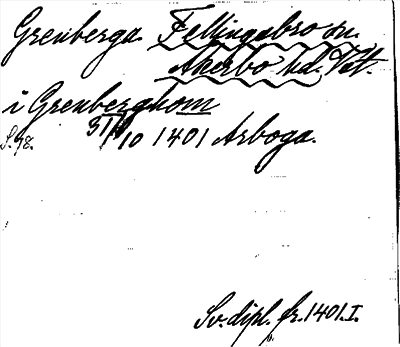 Grenberga. Fellingsbro sn.
Åkerbo hd. Vstm.
i Grenberghom
S. 78. 31/10 1401 Arboga.
Sv. dipl. fr. 1401. I.